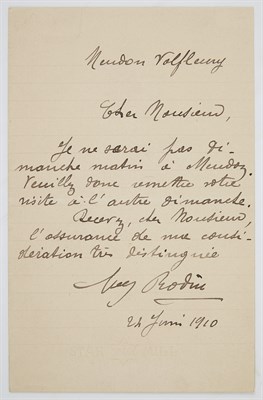 Meudon Valfleury
Cher Monsieur,
Je ne serai pas di-
manche matin à Meudon.
Veuillez donc remettre votre
visite à l'autre dimanche.
Recevez, cher Monsieur,
l'assurance de ma consi-
dération très distinguée
Aug Rodin
24 Juin 1910